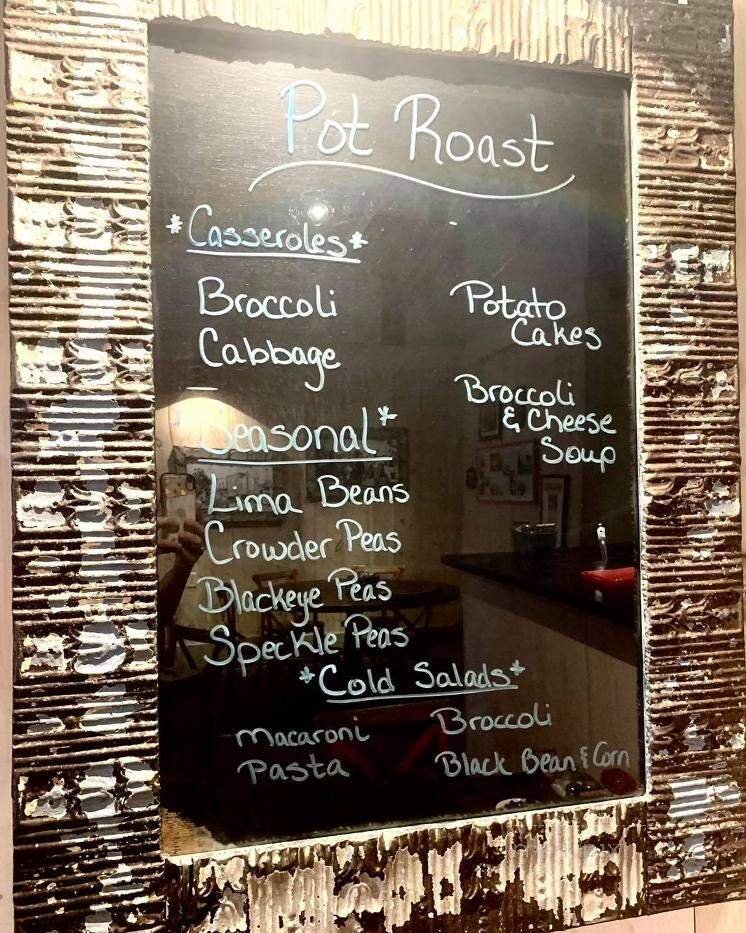 Pot Roast
*Casseroles*
Broccoli
Cabbage
Potato
Cakes
Broccoli
& Cheese
Soup
Seasonal*
Lima Beans
Crowder Peas
Blackeye Peas
Speckle Peas
*Cold Salads*
Macaroni
Pasta
Broccoli
Black Bean & Corn